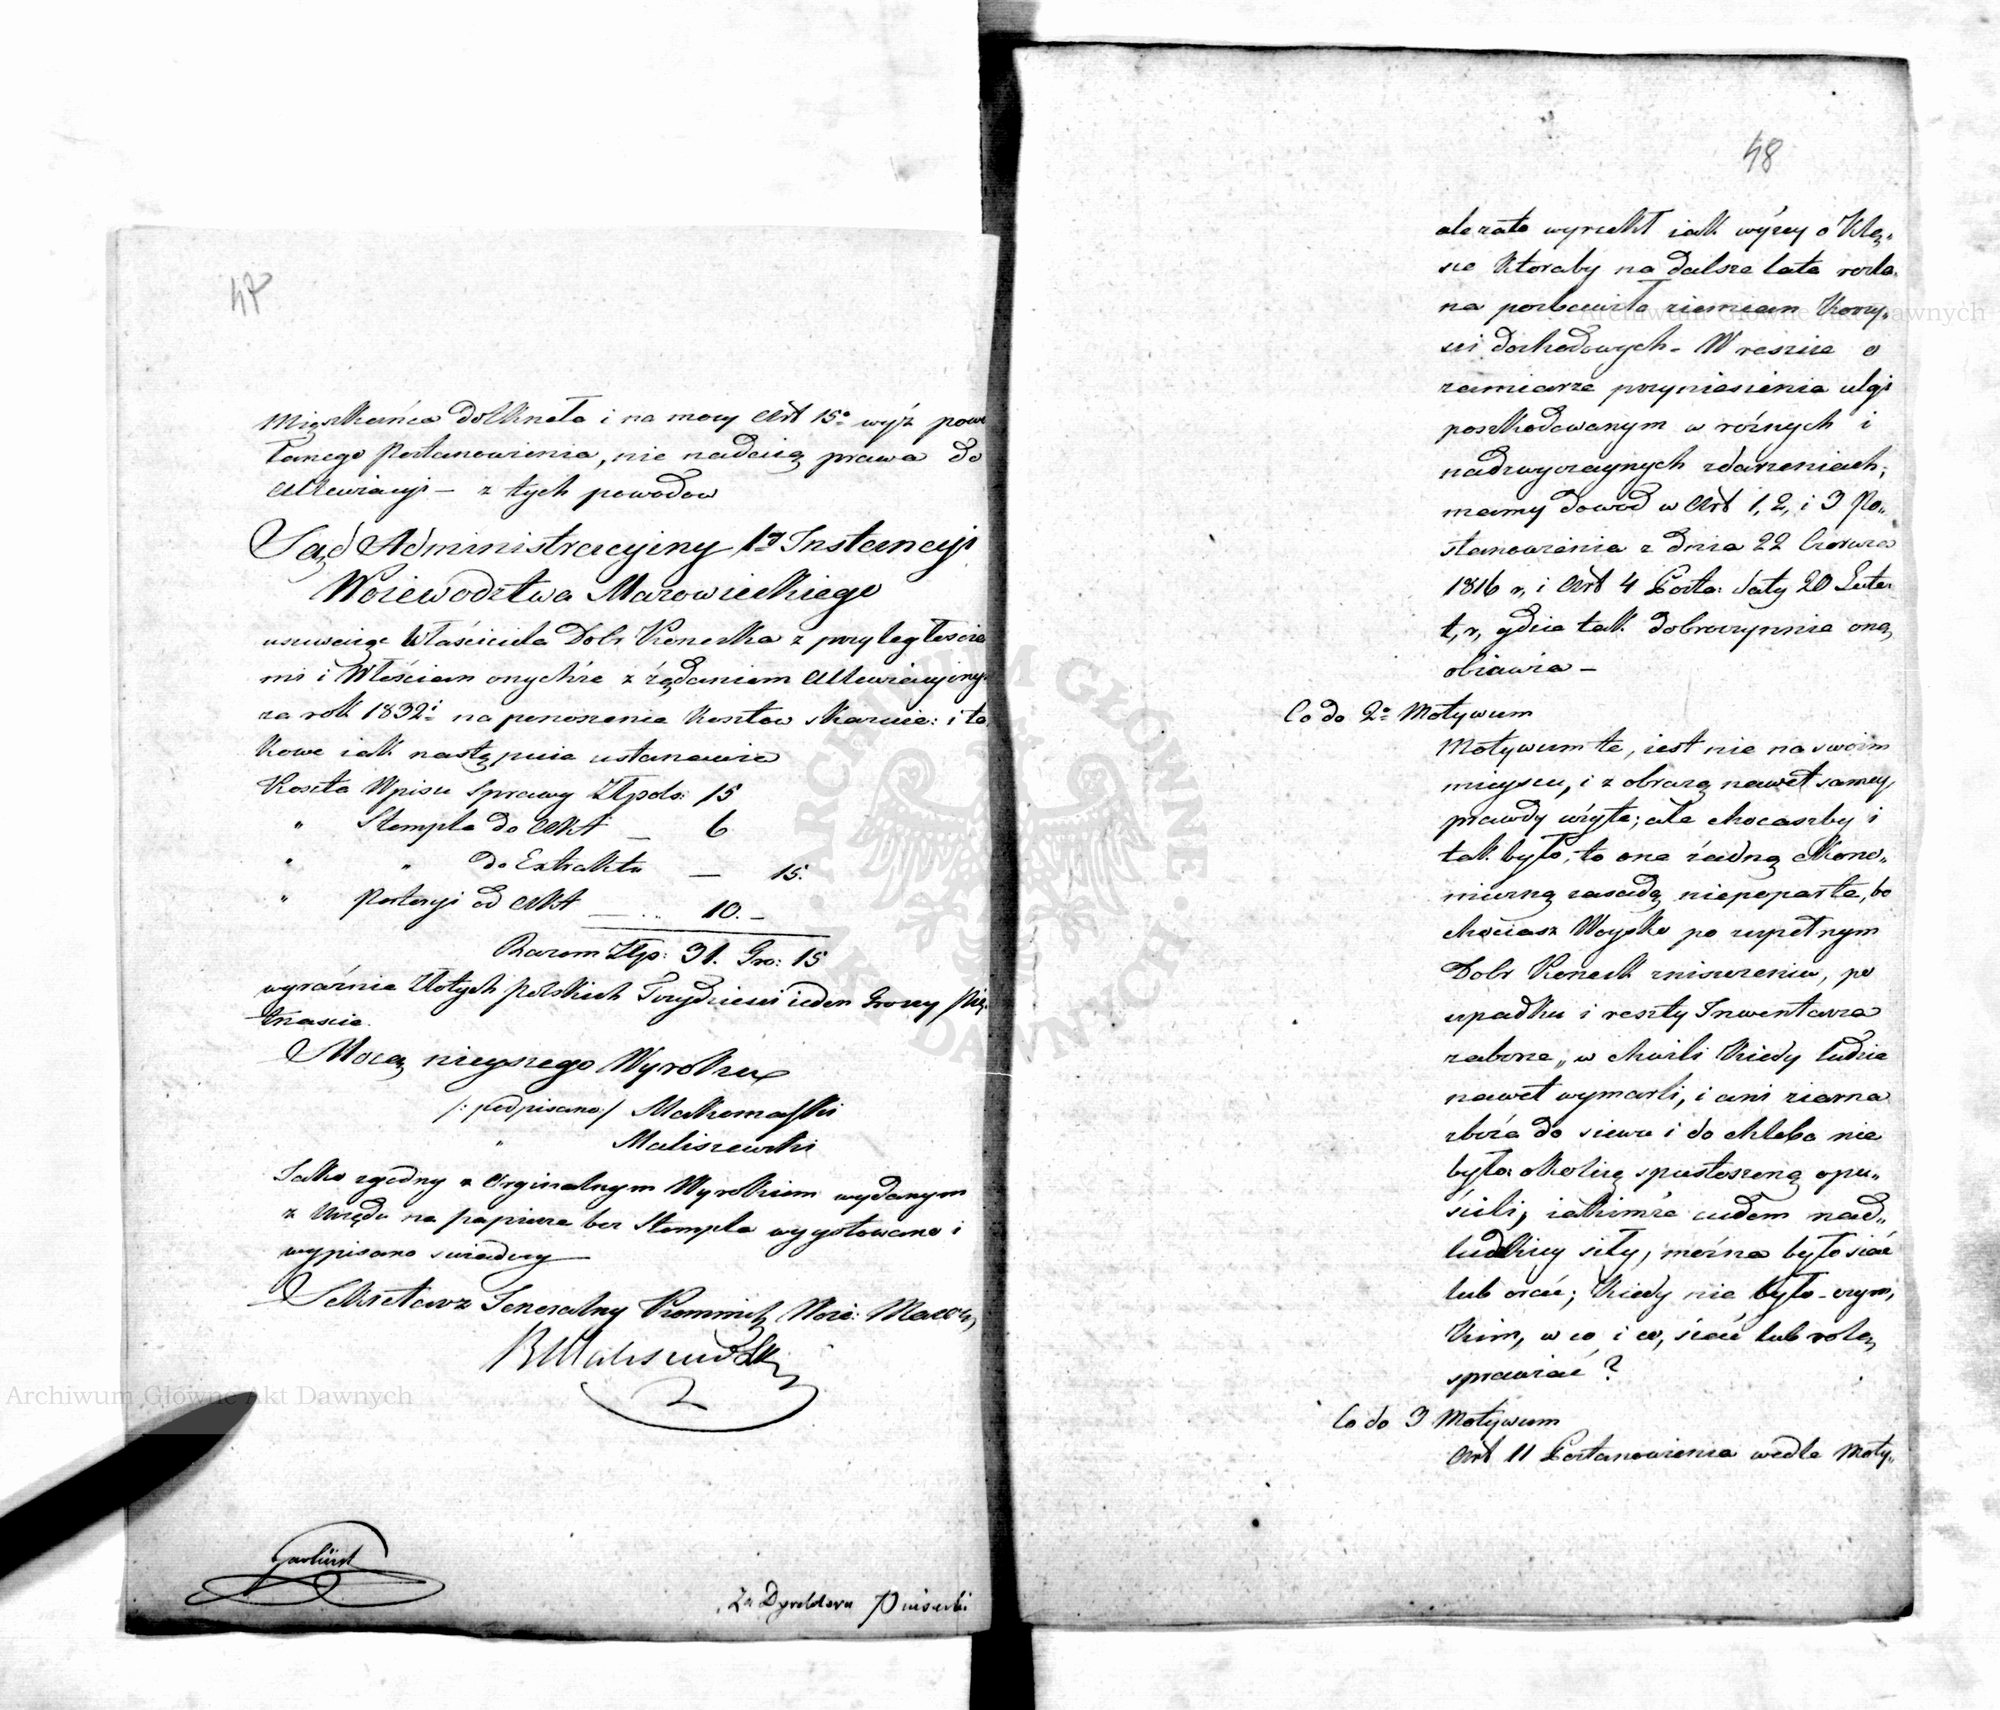 47
Mięszkańca dotknęła i na mocy Art 15º wyż powo
łanego Postanowienia, nie nadaią prawa do
Allewiacyi – z tych powodow
Sąd Administracyiny 1ej Instancyi
Woiewodztwa Mazowieckiego
usuwaiąc Właściciela Dobr Koneck z przyległościa
mi i Włościan onychże z żądaniem Allewiacyiny
za rok 1832i na ponoszenie kosztow skazuie: i ta
kowe iak następuie ustanawia
Koszta Wpisu Sprawy Złpols: 15
" Stempla do Akt — 6
" " do Extraktu — 15.
" Portoryi od Akt — 10. –
Razem Złp: 31. Gro: 15
wyraźnie Złotych Polskich Trzydzieści ieden Groszy Pię„
tnascie.
Mocą ninieyszego Wyroku
/: podpisano:/ Makomaski
" Maliszewski
Jako zgodny z Orginalnym Wyrokiem wydanym
z Urzędu na papierze bez Stempla wygotowano i
wypisano swiadczy
Sekretarz Generalny Kommissyi Woie: Mazow
Maliszewski
Za Dyrektora
48
ale zato wyrzekł iak wyżey o Klę„
sce ktoraby na dalsze lata rozla„
na pozbawiła ziemian korzy„
sci dochodowych – W reszcie o
zamiarze przyniesienia ulgi
poszkodowanym w rożnych i
nadzwyczaynych zdarzeniach,
mamy dowod w Art 1, 2, i 3 Po„
stanowienia z dnia 22 Czerwca
1816 r, i Art 4 Posta: daty 20 Lute
t, r, gdzie tak dobroczynnie oną
obiawia –
Co do 2º Motywum
Motywum te, iest nie na swoim
mieyscu, i z obrazą nawet samey
prawdy użyte; ale chociaszby i
tak było, to one żadną ekono„
miczną zasadą niepoparte, bo
chociasz Woysko po zupełnym
Dobr Koneck zniszczeniu, po
upadku i reszty Inwentarza
zaborze, w chwili kiedy ludzie
nawet wymarli, i ani ziarna
zboża do siewu i do chleba nie
było: okolicę spustoszoną opu„
ścili, iakimże cudem nad„
ludzkiey siły, można było siać
lub orać; kiedy nie było – czym,
kim, w co, i co, siać lub rolą
sprawiać?
Co do 3 Motywum
Art 11 Postanowienia wedle Moty„
Archiwum Główne Akt Dawnych
Archiwum Główne Akt Dawnych
ARCHIWUM GŁÓWNE · AKT DAWNYCH ·